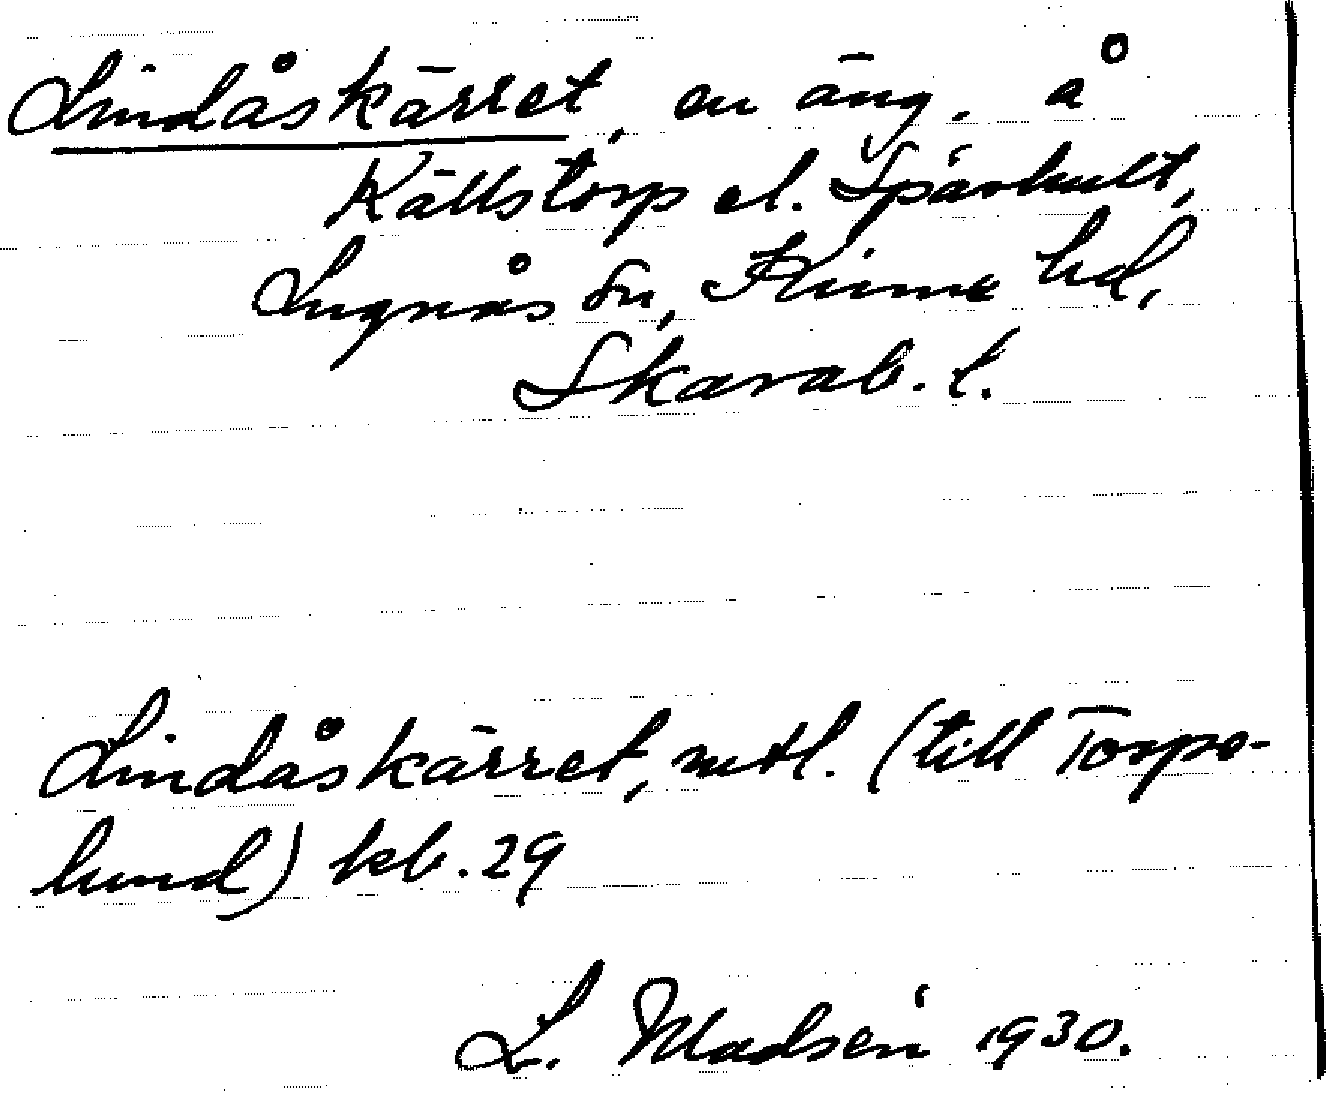 Lindåskärret, en äng. å
Källstorp el. Spårhult,
Lugnås sn, Kinne hd,
Skarab. l.
Lindåskärret, mtl. (till Torpa-
lund) kb. 29
L. Madsén 1930.